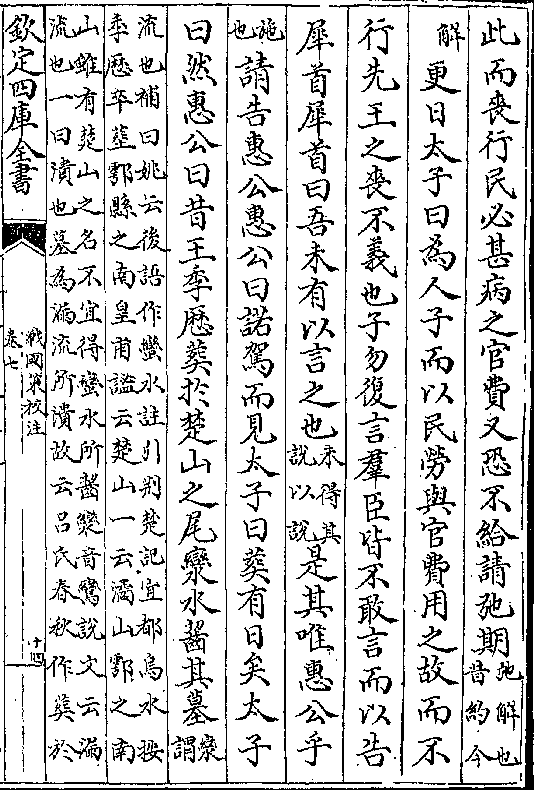 此而喪行民必甚病之官費又恐不給請弛期弛解也昔約今
解更日太子曰為人子而以民勞與官費用之故而不
行先王之喪不義也子勿復言羣臣皆不敢言而以告
犀首犀首曰吾未有以言之也未得其說以說是其唯惠公乎
施也請告惠公惠公曰諾駕而見太子曰葬有日矣太子
曰然惠公曰昔王季歷葬於楚山之尾灓水齧其墓灓謂
流也補曰姚云後語作蠻水註引荆楚記宜都烏水按
季歷卒葬鄠縣之南皇甫謐云楚山一云潏山鄠之南
山雖有楚山之名不宜得蠻水所齧灓音鸞說文云漏
流也一曰漬也墓為漏流所漬故云呂氏春秋作葬於
欽定四庫全書
戰國策校注
卷七
十四